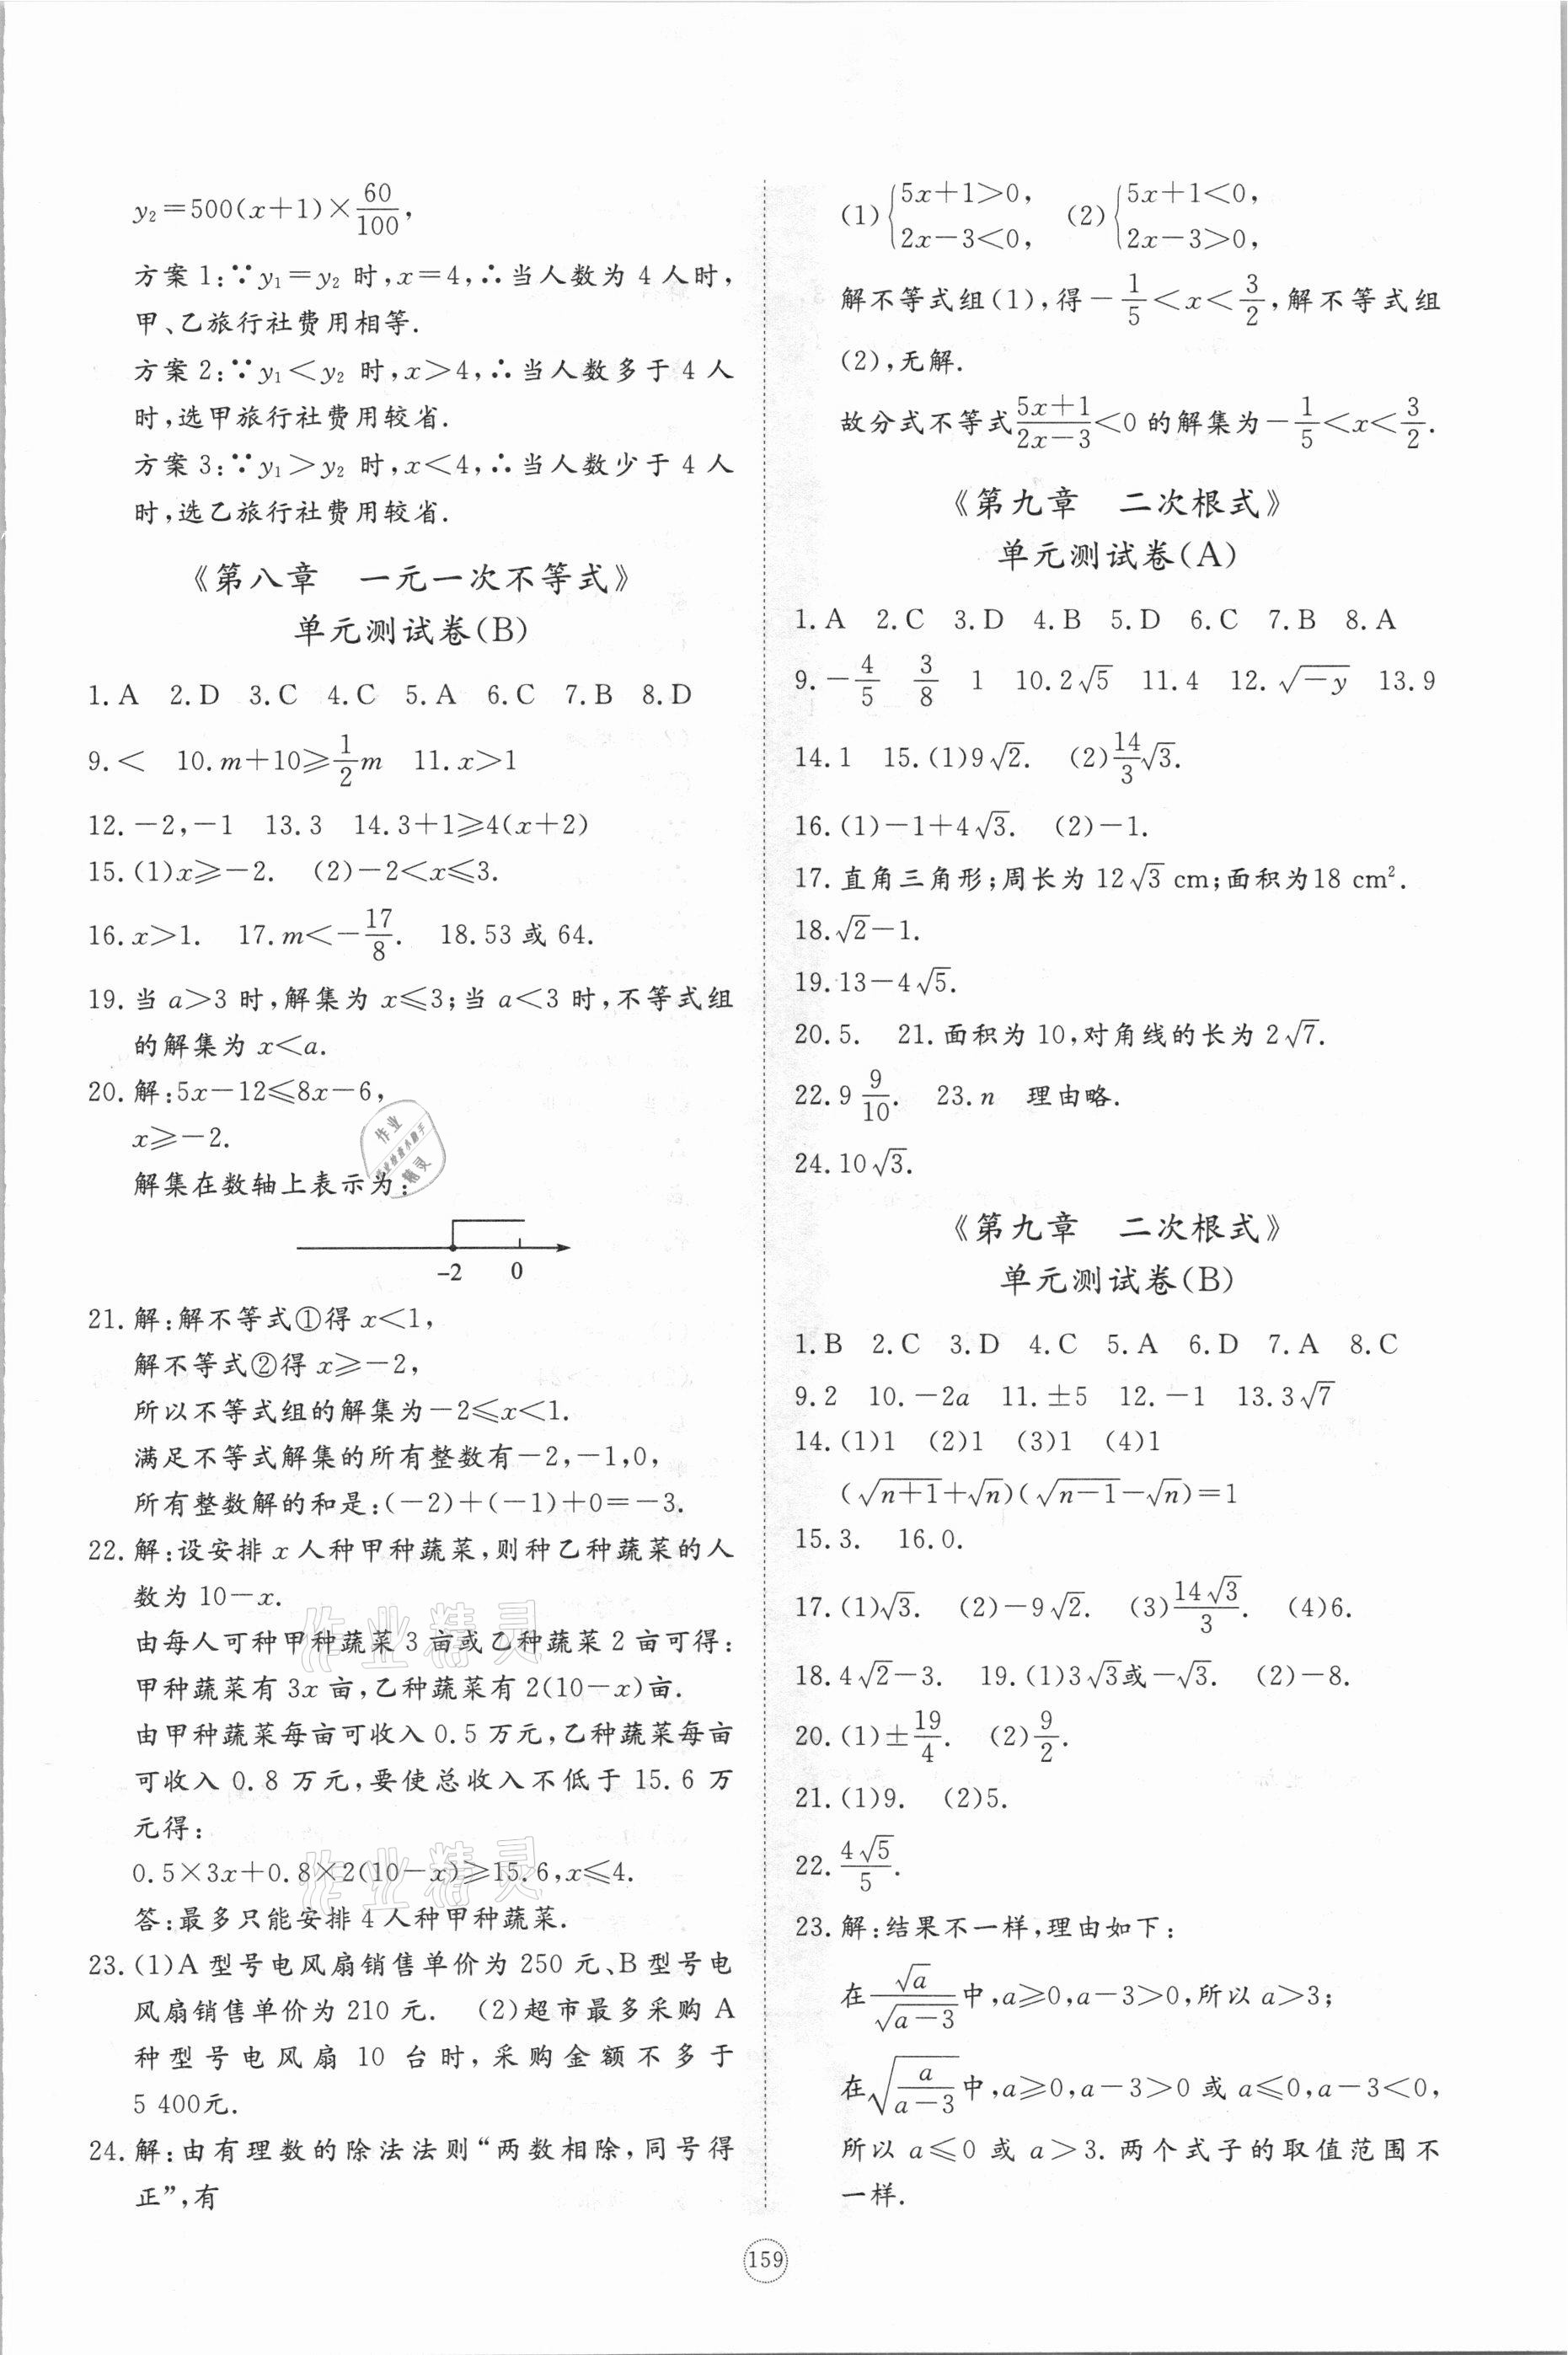 y₂=500(x+1)×60/100,
方案1:∵y₁=y₂ 时,x=4,∴当人数为 4 人时,
甲、乙旅行社费用相等.
方案2:∵y₁<y₂ 时,x>4,∴当人数多于 4 人
时,选甲旅行社费用较省.
方案3:∵y₁>y₂ 时,x<4,∴当人数少于 4 人
时,选乙旅行社费用较省.
《第八章 一元一次不等式》
单元测试卷(B)
1.A 2.D 3.C 4.C 5.A 6.C 7.B 8.D
9.< 10.m+10⩾1/2m 11.x>1
12.-2,-1 13.3 14.3+1⩾4(x+2)
15.(1)x⩾-2. (2)-2<x⩽3.
16.x>1. 17.m<-17/8. 18.53 或 64.
19.当 a>3 时,解集为 x⩽3;当 a<3 时,不等式组
的解集为 x<a.
20.解:5x-12⩽8x-6,
x⩾-2.
解集在数轴上表示为:
-2 0
21.解:解不等式①得 x<1,
解不等式②得 x⩾-2,
所以不等式组的解集为-2⩽x<1.
满足不等式解集的所有整数有-2,-1,0,
所有整数解的和是:(-2)+(-1)+0=-3.
22.解:设安排 x 人种甲种蔬菜,则种乙种蔬菜的人
数为 10-x.
由每人可种甲种蔬菜 3 亩或乙种蔬菜 2 亩可得:
甲种蔬菜有 3x 亩,乙种蔬菜有 2(10-x)亩.
由甲种蔬菜每亩可收入 0.5 万元,乙种蔬菜每亩
可收入 0.8 万元,要使总收入不低于 15.6 万
元得:
0.5×3x+0.8×2(10-x)⩾15.6,x⩽4.
答:最多只能安排 4 人种甲种蔬菜.
23.(1)A 型号电风扇销售单价为 250 元、B 型号电
风扇销售单价为 210 元. (2)超市最多采购 A
种型号电风扇 10 台时,采购金额不多于
5 400元.
24.解:由有理数的除法法则“两数相除,同号得
正”,有
(1){5x+1>0, 2x-3<0, (2){5x+1<0, 2x-3>0,
解不等式组(1),得-1/5<x<3/2,解不等式组
(2),无解.
故分式不等式(5x+1)/(2x-3)<0 的解集为-1/5<x<3/2.
《第九章 二次根式》
单元测试卷(A)
1.A 2.C 3.D 4.B 5.D 6.C 7.B 8.A
9.-4/5 3/8 1 10.2√5 11.4 12.√(-y) 13.9
14.1 15.(1)9√2. (2)14/3√3.
16.(1)-1+4√3. (2)-1.
17.直角三角形;周长为 12√3 cm;面积为18 cm².
18.√2-1.
19.13-4√5.
20.5. 21.面积为 10,对角线的长为 2√7.
22.9 9/10. 23.n 理由略.
24.10√3.
《第九章 二次根式》
单元测试卷(B)
1.B 2.C 3.D 4.C 5.A 6.D 7.A 8.C
9.2 10.-2a 11.±5 12.-1 13.3√7
14.(1)1 (2)1 (3)1 (4)1
(√(n+1)+√n)(√(n-1)-√n)=1
15.3. 16.0.
17.(1)√3. (2)-9√2. (3)14√3/3. (4)6.
18.4√2-3. 19.(1)3√3或-√3. (2)-8.
20.(1)±19/4. (2)9/2.
21.(1)9. (2)5.
22.4√5/5.
23.解:结果不一样,理由如下:
在√a/√(a-3)中,a⩾0,a-3>0,所以 a>3;
在√(a/(a-3))中,a⩾0,a-3>0 或 a⩽0,a-3<0,
所以 a⩽0 或 a>3.两个式子的取值范围不
一样.
159
作业精灵
作业精灵